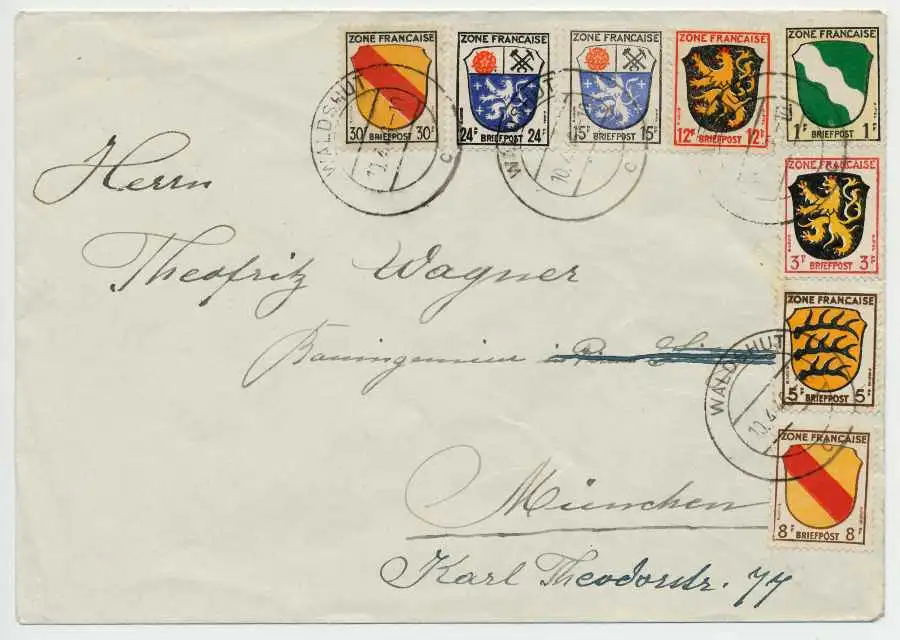 ZONE FRANCAISE
30F BRIEFPOST 30F
ZONE FRANCAISE
24F BRIEFPOST 24F
ZONE FRANCAISE
15F BRIEFPOST 15F
ZONE FRANCAISE
12F BRIEFPOST 12F
ZONE FRANCAISE
1F BRIEFPOST 1F
ZONE FRANCAISE
3F BRIEFPOST 3F
ZONE FRANCAISE
5F BRIEFPOST 5F
ZONE FRANCAISE
8F BRIEFPOST 8F
WALDSHUT
10.4
c
WALDSHUT
10.4
c
WALDSHUT
10.4
c
Herrn
Theofritz Wagner
Bauingenieur
München
Karl Theodorstr. 77